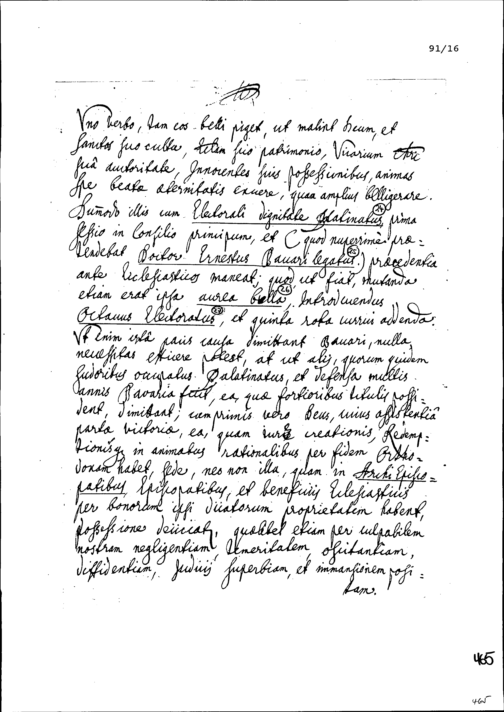 91/16
Uno verbo, tam eos belli piget, ut malint Deum, et
Sanctos suo cultu, suo patrimonio, Vicarium
sua auctoritate, Innocentes suis possessionibus, animas
spe beatae aeternitatis exuere, quam amplius belligerare.
Dumodo illis cum Electorali dignitate Palatinatus, prima
sessio in Consilio principum, et (quod nuperrime prae=
tendebat Doctor Ernestus Bavari legatus) praecedentia
ante Ecclesiasticos maneat; quod ut fiat, mutanda
etiam erat ipsa aurea Bulla, Introducendus
Octavus Electoratus, et quinta rota currui addenda.
Ut enim ista pacis causa dimittant Bavari, nulla
necessitas efficere potest, at ut alij, quorum quidem
sudoribus occupatus Palatinatus, et defensa multis
annis Bavaria, ea, quae fortioribus titulis possi=
dent, dimittant; cumprimis vero Deus, cuius assistentia
parta victoria, ea, quam iure creationis, Redemp=
tionisque in animabus rationalibus per fidem Ortho=
doxam habet, sede, nec non illa, quam in Archi Episco=
patibus, Episcopatibus, et beneficiis Ecclesiasticis
per bonorum ipsi dicatorum proprietatem habent,
possessione deiiciat, quaelibet etiam per culpabilem
nostram negligentiam, temeritatem, oscitantiam,
diffidentiam, superbiam, et
tam.
465
465